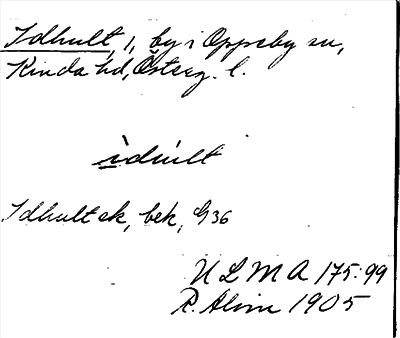 Idhult, 1, by i Oppeby sn,
Kinda hd, Österg. l.
ìdùlt
Idhult ek, bek, G36
ULMA 175:99
R. Alvin 1905